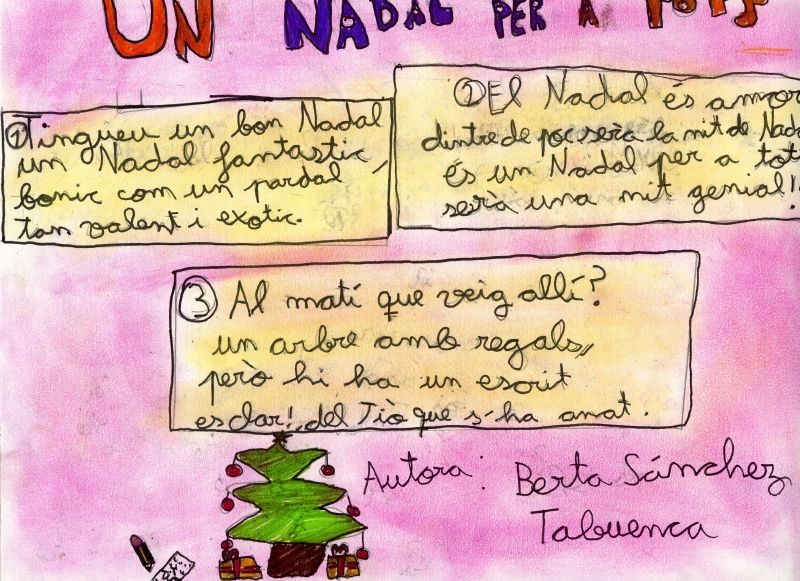 UN NADAL PER A TOTS
① Tingueu un bon Nadal
un Nadal fantastic
bonic com un pardal
tan valent i exotic.
② El Nadal és amor
dintre de poc serà la nit de Nada
és un Nadal per a tots
serà una nit genial!!
③ Al matí que veig allí?
un arbre amb regals,
però hi ha un escrit
es clar! del Tió que s'ha anat.
Autora: Berta Sánchez
Tabuenca